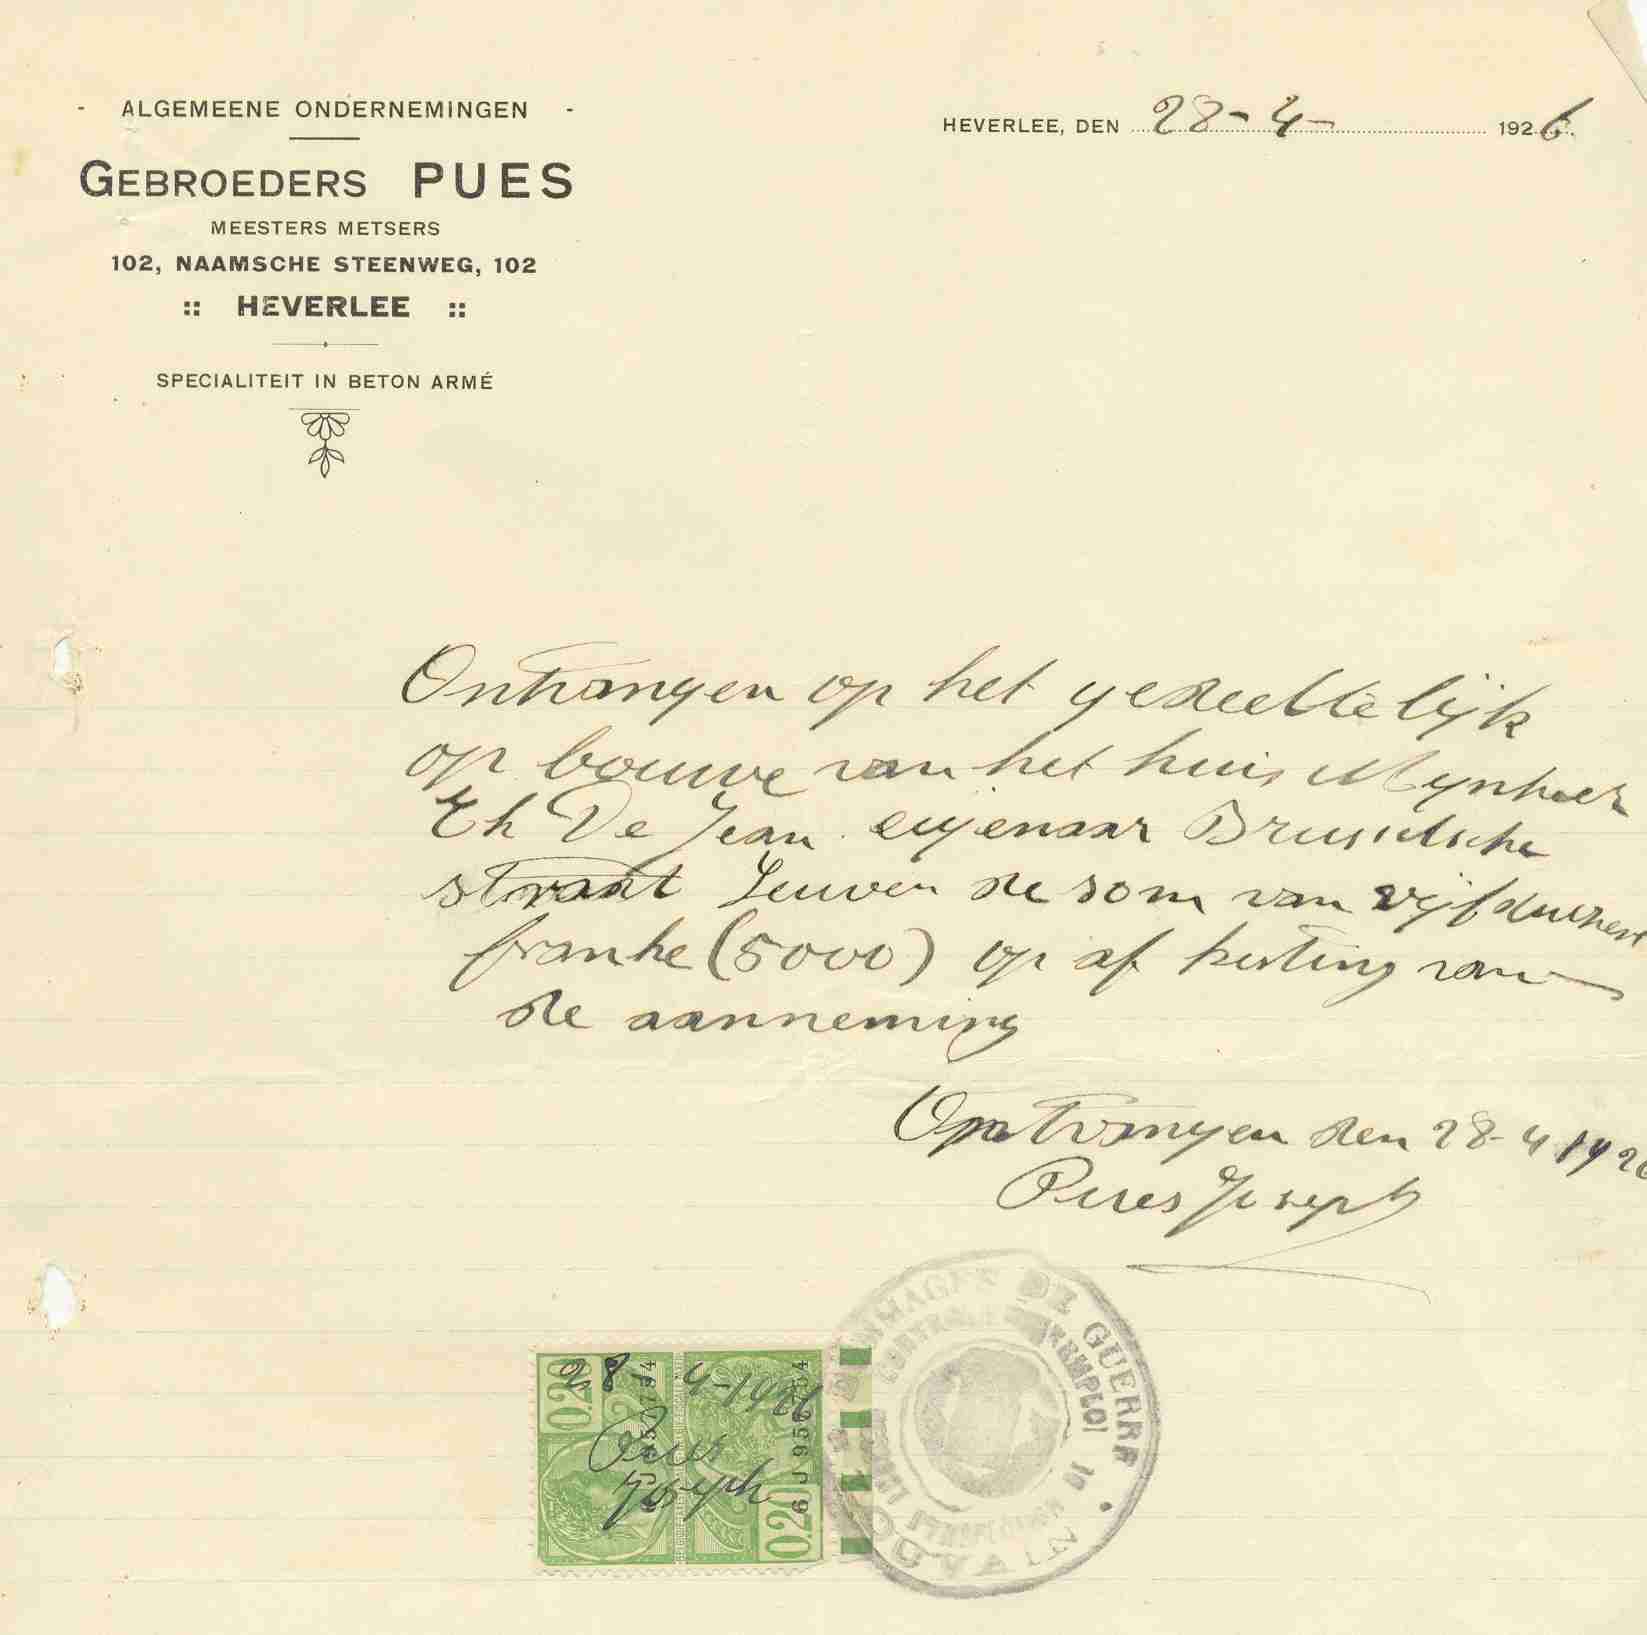 - ALGEMEENE ONDERNEMINGEN -
GEBROEDERS PUES
MEESTERS METSERS
102, NAAMSCHE STEENWEG, 102
:: HEVERLEE ::
SPECIALITEIT IN BETON ARMÉ
HEVERLEE, DEN 28-4- 1926.
Ontvangen op het gedeeltelijk
op bouwe van het huis Mynheer
De Jean eigenaar Brusselsche
straat Leuven de som van vijfduizent
franke (5000) op af korting van
de aanneming
Ontvangen den 28-4 1926
Pues Joseph
0.20
28-4-1926
Pues
Joseph
0.20
DOMMAGES DE GUERRE
CONTROLE REMPLOI
LOUVAIN